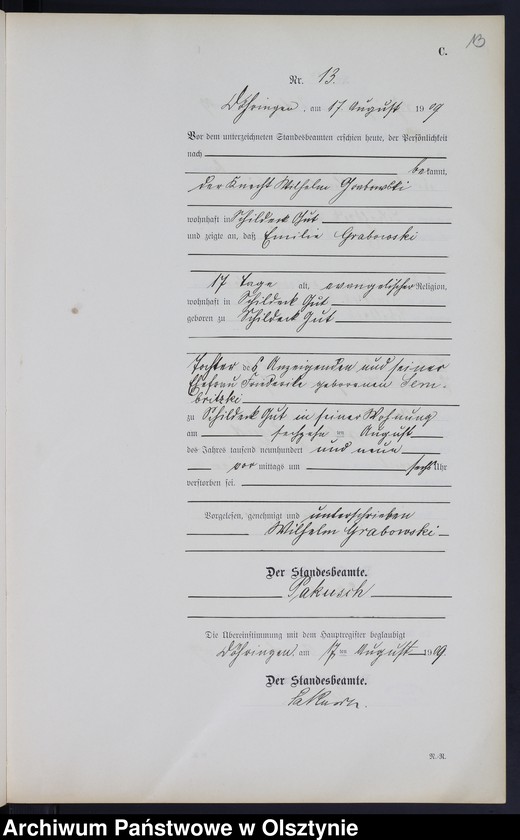 13
C.
Nr. 13.
Döhringen, am 17 August 1909
Vor dem unterzeichneten Standesbeamten erschien heute, der Persönlichkeit
nach
bekannt,
der Knecht Wilhelm Grabowski
wohnhaft in Schildeck Gut
und zeigte an, daß Emilie Grabowski
17 Tage alt, evangelischer Religion,
wohnhaft in Schildeck Gut
geboren zu Schildeck Gut
Tochter des Anzeigenden und seiner
Ehefrau Friederike geborenen Sem-
britzki
zu Schildeck Gut in seiner Wohnung
am sechzehnten August
des Jahres tausend neunhundert und neun
vor mittags um sechs Uhr
verstorben sei.
Vorgelesen, genehmigt und unterschrieben
Wilhelm Grabowski
Der Standesbeamte.
Sakusch
Die Übereinstimmung mit dem Hauptregister beglaubigt
Döhringen, am 17ten August 1909
Der Standesbeamte.
N.-N.
Archiwum Państwowe w Olsztynie